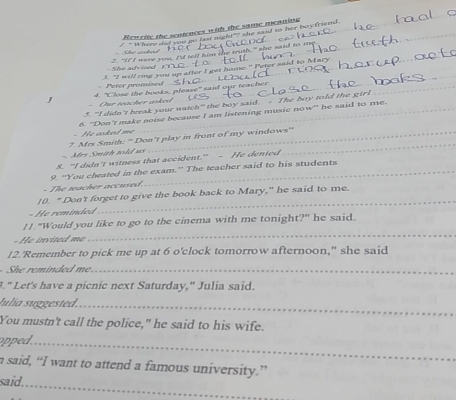 Rewrite the sentences with the same meaning
1. "Where did you go last night?" she said to her boyfriend.
- She asked her boyfriend where he had
2. "If I were you, I'd tell him the truth." she said to me
- She advised me to tell him the truth.
3. "I will ring you up after I get home." Peter said to Mary
- Peter promised she would ring her up
4. "Close the books, please" said our teacher.
- Our teacher asked us to close the books.
5. "I didn't break your watch" the boy said. - The boy told the girl
6. "Don't make noise because I am listening music now" he said to me.
- He asked me
7. Mrs Smith: "Don't play in front of my windows"
- Mrs Smith told us
8. "I didn't witness that accident." - He denied
9. "You cheated in the exam." The teacher said to his students
- The teacher accused
10. "Don't forget to give the book back to Mary," he said to me.
- He reminded
11. "Would you like to go to the cinema with me tonight?" he said.
- He invited me
12."Remember to pick me up at 6 o'clock tomorrow afternoon," she said
- She reminded me
3." Let's have a picnic next Saturday," Julia said.
Julia suggested
You mustn't call the police," he said to his wife.
opped
said, "I want to attend a famous university."
said